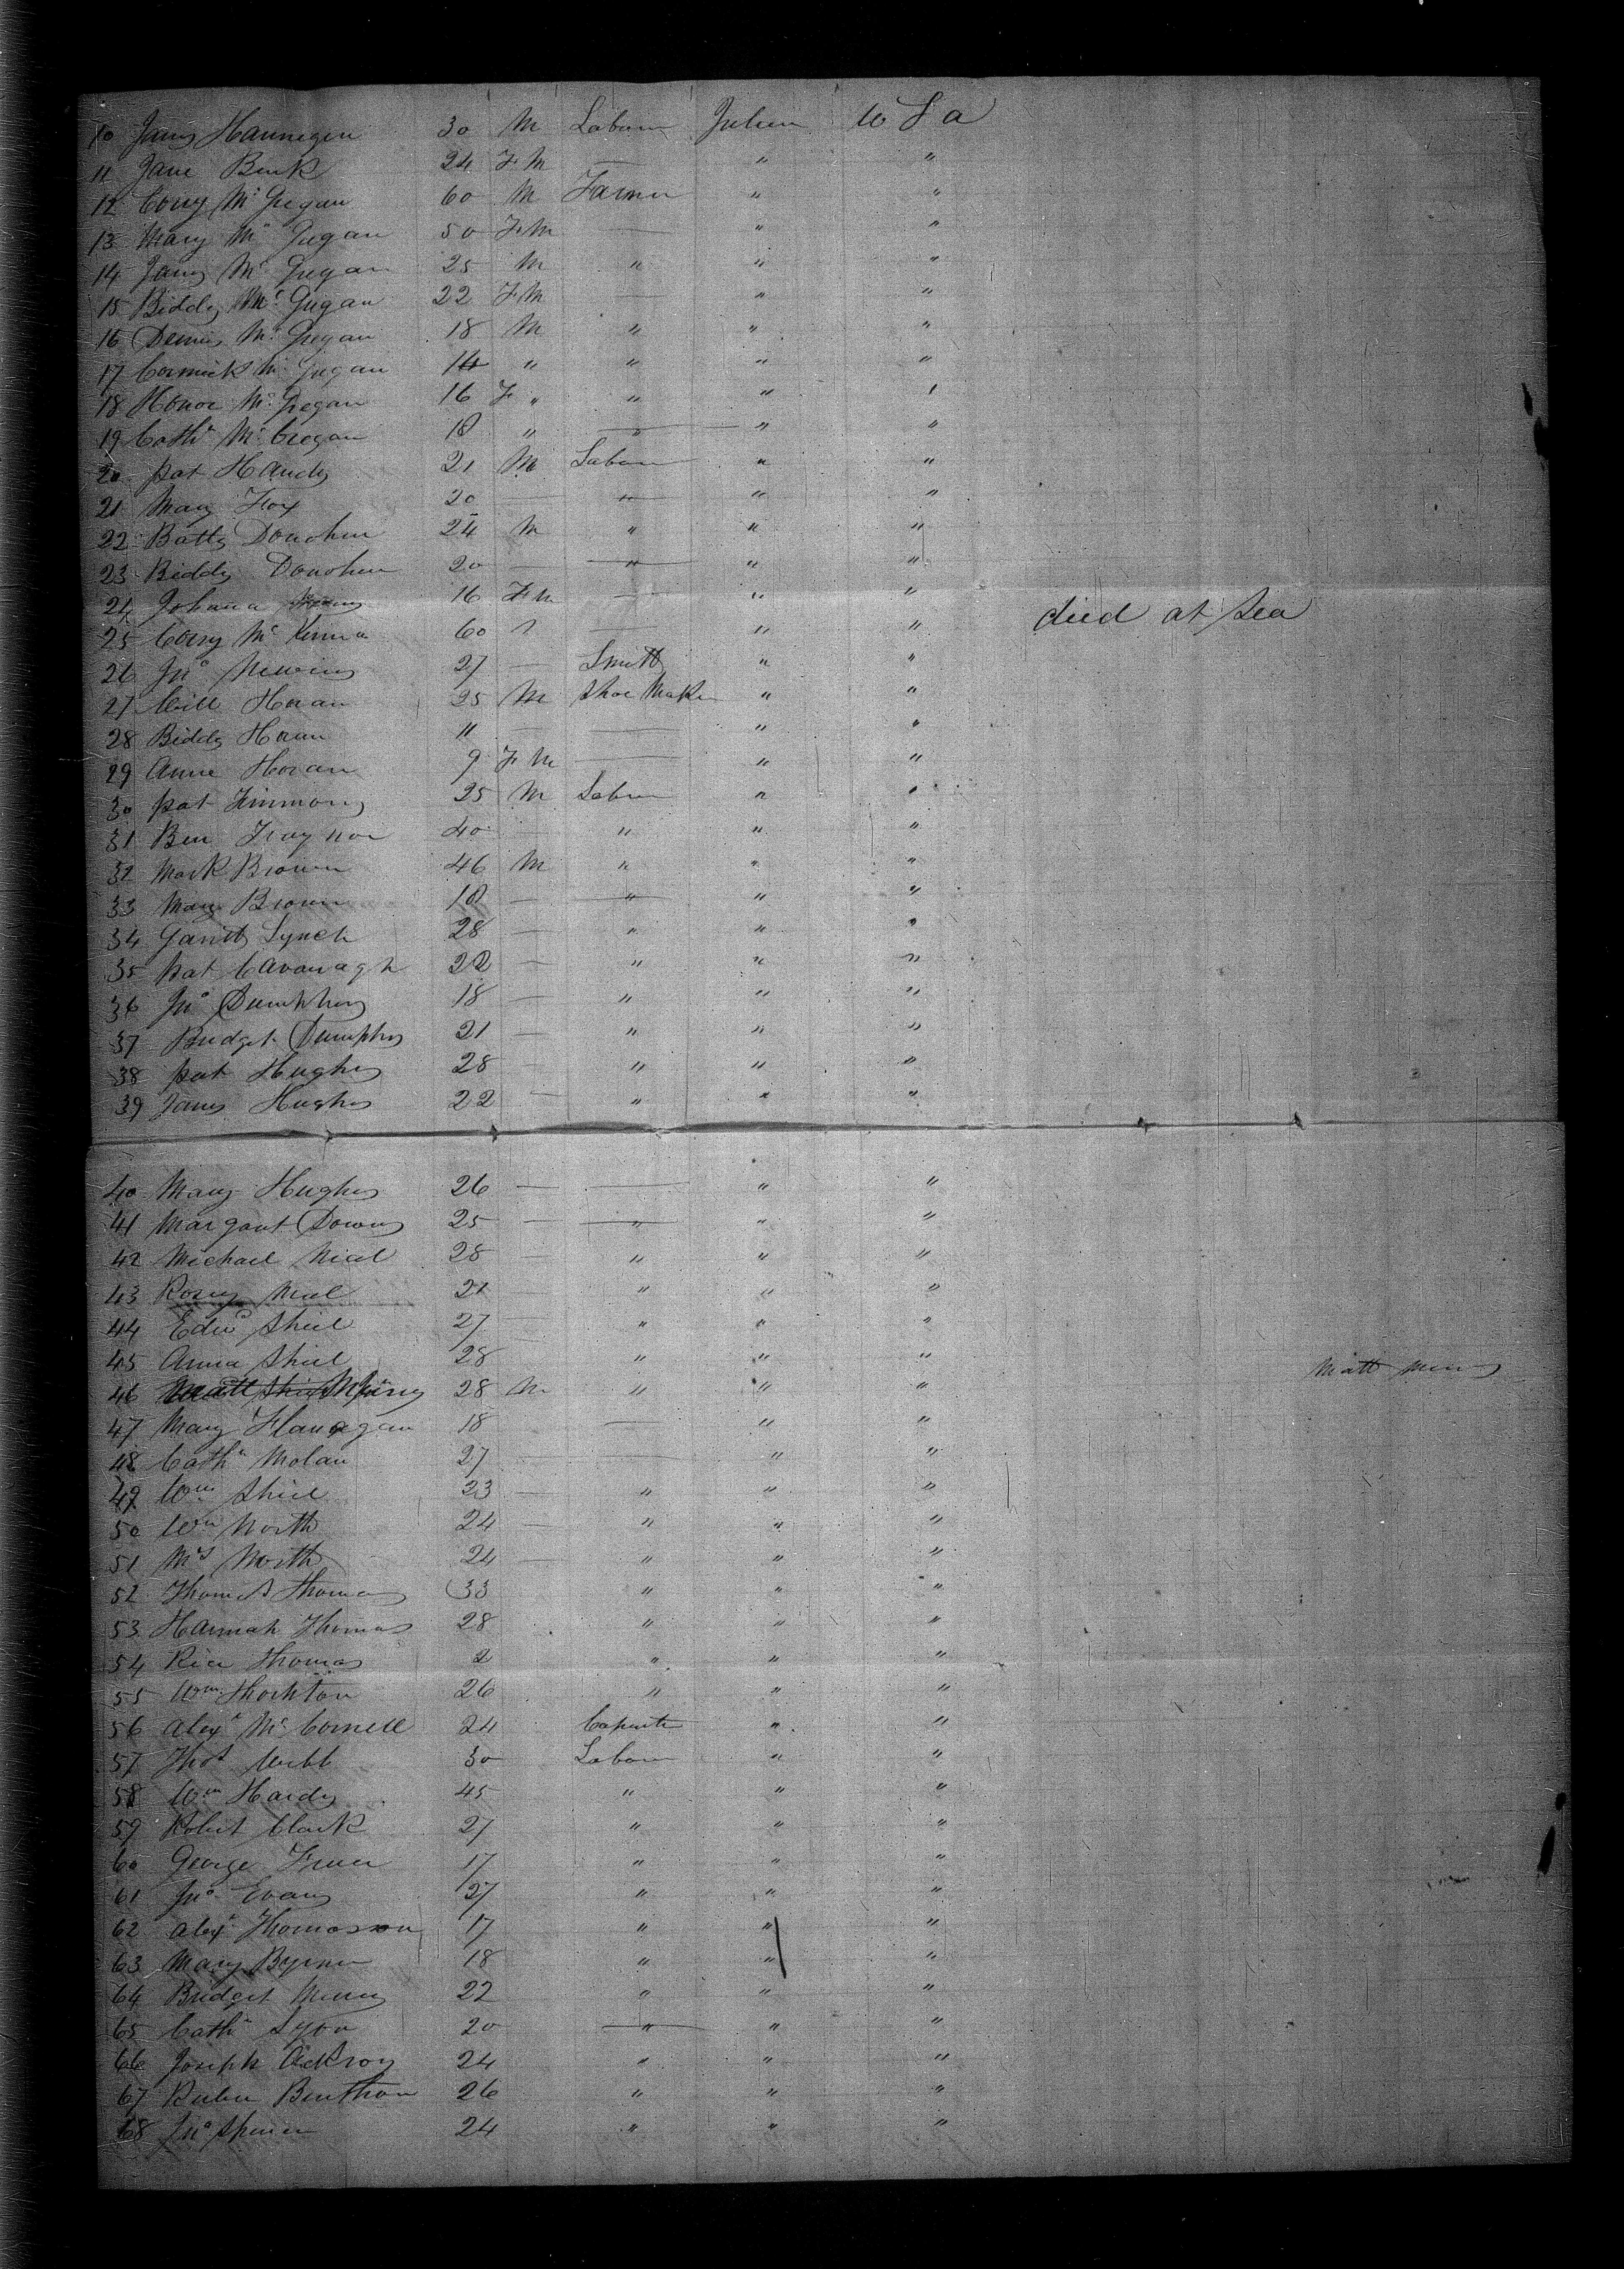 10 James Hannegen 30 M Labourer Ireland U S a
11 Jane 24 F M — " "
12 Corry Mc Gregan 60 M Farmer " "
13 Mary Mc Gregan 50 F M — " "
14 James Mc Gregan 25 M " " "
15 Biddy Mc Gregan 22 F M — " "
16 Dennis Mc Gregan 18 M " " "
17 Cormick Mc Gregan 14 " " " "
18 Honor Mc Gregan 16 F " " " "
19 Cathn Mc Gregan 18 " " " "
20 pat Handy 21 M Labour " "
21 Mary Fox 20 — " " "
22 Batty Donohue 24 M " " "
23 Biddy Donohue 20 — " " "
24 Johana 16 F M — " "
25 Corry Mc Kenna 60 — " " died at Sea
26 Jno 27 — Smith " "
27 Will Horan 25 M Shoe Maker " "
28 Biddy Horan 11 — — " "
29 Anne Horan 9 F M — " "
30 pat Timmons 25 M Labour " "
31 Ben Traynor 40 — " " "
32 Mark Brown 46 M " " "
33 Mary Brown 18 — " " "
34 Garrett Lynch 28 — " " "
35 pat Cavanagh 22 — " " "
36 Jno Dumphy 18 — " " "
37 Bridget Dumphy 21 — " " "
38 pat Hughes 28 — " " "
39 James Hughes 22 — " " "
40 Mary Hughes 26 — — " "
41 Margaret Downs 25 — " " "
42 Michael Nial 28 — " " "
43 Rosey Nial 21 — " " "
44 Edwd Shiel 27 — " " "
45 Anna Shiel 28 " " "
46 28 M " " " Matt
47 Mary Flanagan 18 — " "
48 Cathn Molan 27 — — " "
49 Wm Shiel 23 — " " "
50 Wm North 24 — " " "
51 Mrs North 24 — " " "
52 Thomas Thomas 33 " " "
53 Hannah Thomas 28 " " "
54 Rice Thomas 2 " " "
55 Wm Thornton 26 " " "
56 Alexr Mc Connell 24 Carpenter " "
57 Thos Webb 30 Labour " "
58 Wm Hardy 45 " " "
59 Robert Clark 27 " " "
60 George 17 " " "
61 Jno Evans 27 " " "
62 Alexr Thomasson 17 " " "
63 Mary Byrne 18 " " "
64 Bridget 22 " " "
65 Cathn Lyon 20 — " " "
66 Joseph Ackroy 24 " " "
67 Ruben Benthom 26 " " "
68 Jno Spencer 24 " " "